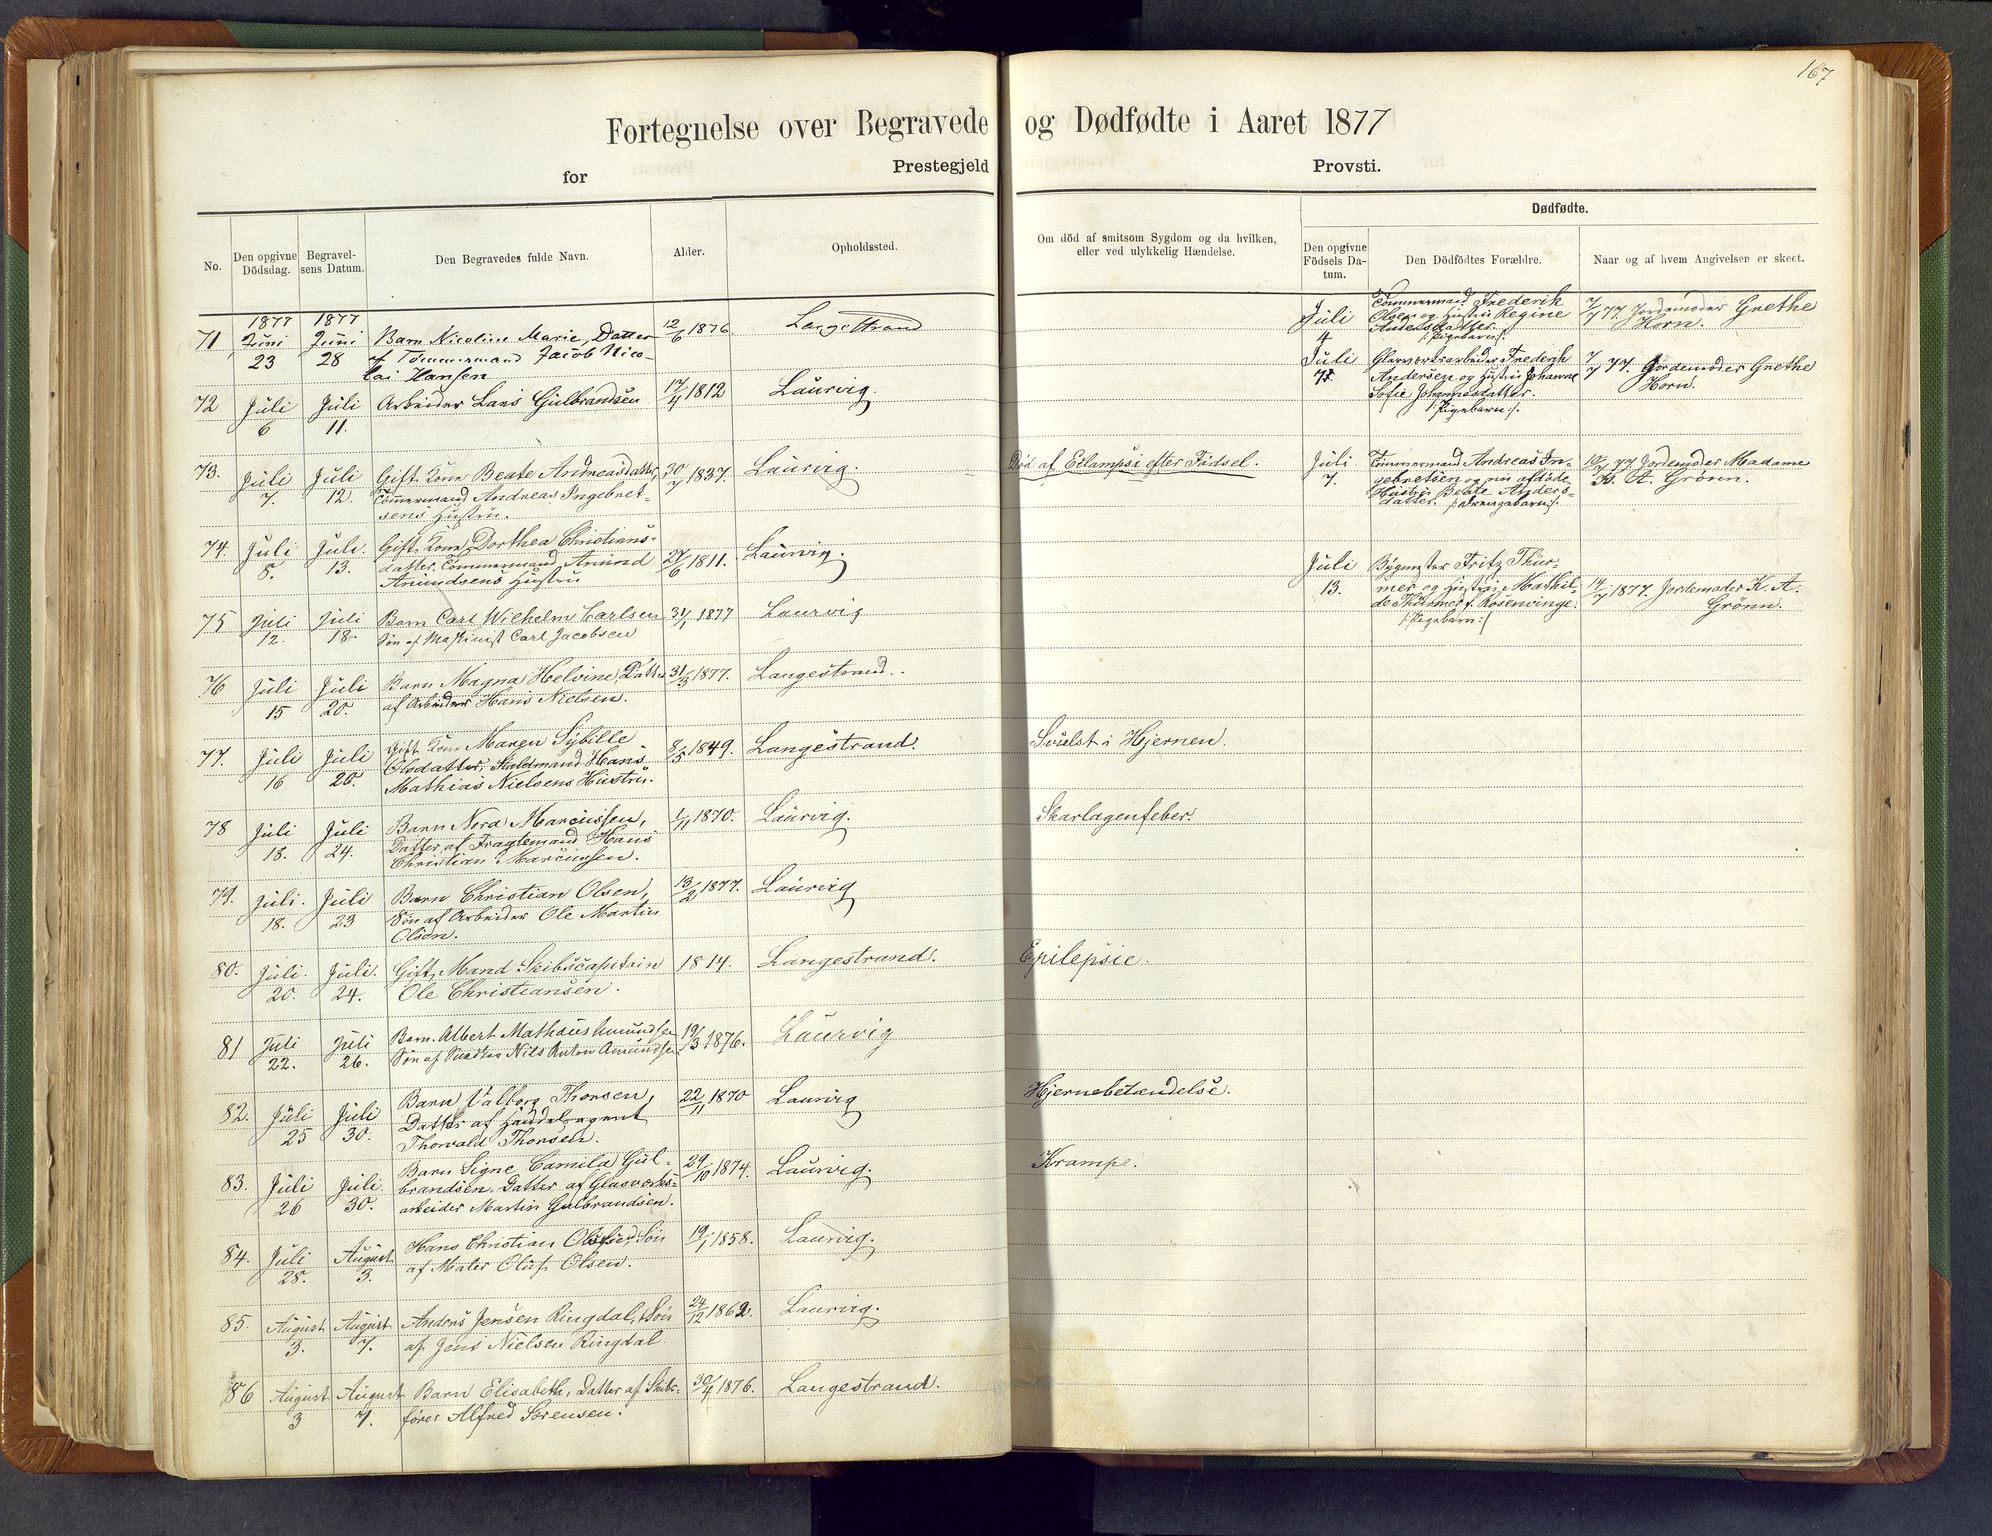 167
Fortegnelse over Begravede og Dødfødte i Aaret 1877
for Prestegjeld Provsti.
No.
Den opgivne Dödsdag.
Begravelsens Datum.
Den Begravedes fulde Navn.
Alder.
Opholdssted.
Om död af smitsom Sygdom og da hvilken,
eller ved ulykkelig Hændelse.
Dødfødte.
Den opgivne Födsels Datum.
Den Dödfödtes Forældre.
Naar og af hvem Angivelsen er skeet.
71 1877 Juni 23 1877 Juni 28 Barn Nicoline Marie, Datter 12/6 1876. Langestrand
af Tømmermand Jacob Nico-
lai Hansen
72 Juli 6 Juli 11. Arbeider Lars Gulbrandsen 17/4 1812 Laurvig.
73. Juli 7. Juli 12. Gift Kone Beate Andreasdatter, 30/7 1837. Laurvig. Död af Eclampsi efter Fødsel.
Tømmermand Andreas Ingebret-
sens Hustru.
74. Juli 8. Juli 13. Gift Kone Dorthea Christians- 27/6 1811. Laurvig.
datter, Tømmermand Amund
Amundsens Hustru
75 Juli 12. Juli 18. Barn Carl Wilhelm Carlsen 31/1 1877 Laurvig
Søn af Maskinist Carl Jacobsen
76 Juli 15 Juli 20. Barn Magna Helvine, Datter 31/3 1877. Langestrand.
af Arbeider Hans Nielsen.
77. Juli 16 Juli 20. Gift Kone Maren Sybille 8/5 1849. Langestrand. Svulst i Hjernen.
Olsdatter, Hans
Mathias Nielsens Hustru.
78 Juli 18. Juli 24. Barn Nora Marcussen, 1/11 1870. Laurvig. Skarlagenfeber.
Datter af Fragtemand Hans
Christian Marcussen.
79. Juli. 18. Juli 23 Barn Christian Olsen, 13/2 1877. Laurvig
Søn af Arbeider Ole Martin
Olsen.
80. Juli. 20. Juli. 24. Gift Mand Skibscapitain 1814. Langestrand. Epilepsie.
Ole Christiansen.
81 Juli 22. Juli 26. Barn Albert Mathæus Amundsen 19/3 1876. Laurvig
Søn af Snedker Nils Anton Amundsen
82. Juli 25 Juli 30. Barn Valborg Thorsen, 22/11 1870 Laurvig Hjernebetændelse.
Datter af Handelsagent
Thorvald Thorsen.
83. Juli 26 Juli 30. Barn Signe Camila Gul- 29/10 1874. Laurvig. Krampe.
brandsen. Datter af Glasværks-
arbeider Martin Gulbrandsen.
84. Juli 28. August 3. Hans Christian Søn 19/1 1858. Laurvig.
af Maler Oluf Olsen.
85. August 3. August 7. Anders Jensen Ringdal, Søn 24/12 1862. Laurvig.
af Jens Nielsen Ringdal
86 August 3 August 7. Barn Elisabeth, Datter af Skibs- 30/4 1876. Langestrand.
fører Alfred Sørensen.
Juli 4 Tømmermand Frederik 7/7 77. Jordemoder Grethe
Olsen og Hustru Regine Horn.
Andersdatter.
/: Pigebarn :/.
Juli Glasværksarbeider Frederik 7/7 77. Jordemoder Grethe
Andersen og Hustru Johanne Horn.
Sofie Johannesdatter.
/: Pigebarn :/.
Juli 7. Tømmermand Andreas In- 10/7 77 Jordemoder Madame
gebretsen og nu afdøde K. A. Grønn.
Hustru Beate Anders-
datter. /: Drengebarn :/.
Juli 13. Bygmester Fritz Thür-
mer og Hustru Mathil- 14/7 1877. Jordemoder K. A.
de Thürmer f. Rosenvinge. Grönn.
/: Pigebarn :/